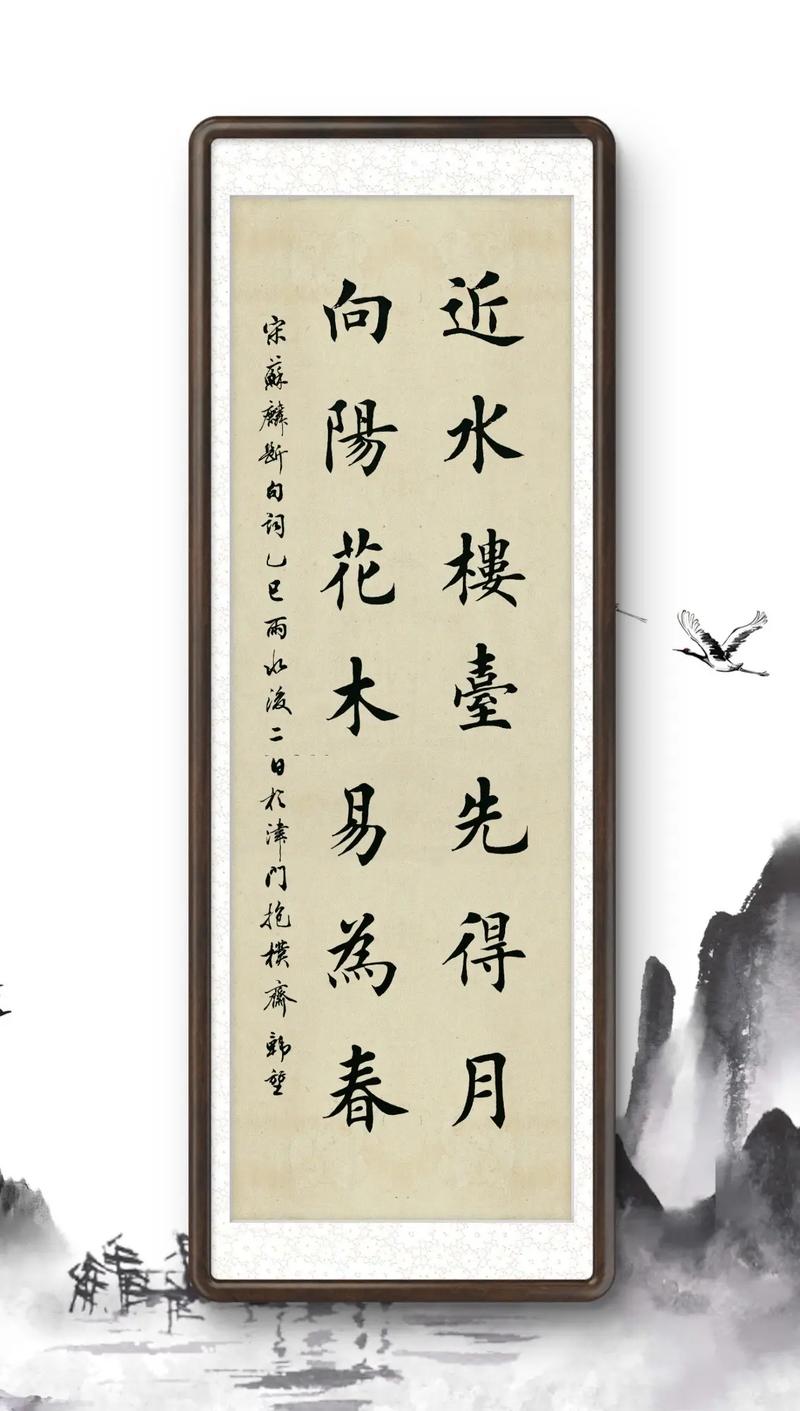 近水樓臺先得月
向陽花木易為春
宋蘇麟斷句詞乙巳雨水後二日於津門抱樸齋韩